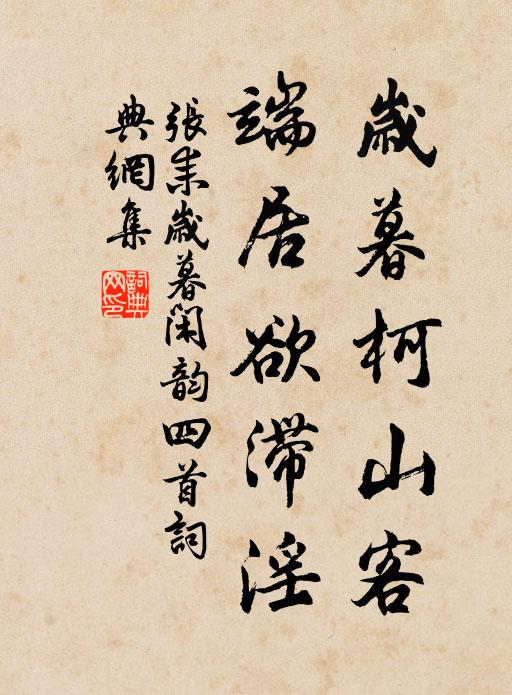 歲暮柯山客
端居欲滯淫
張耒歲暮閑韵四首詞
典網集
詞典网印